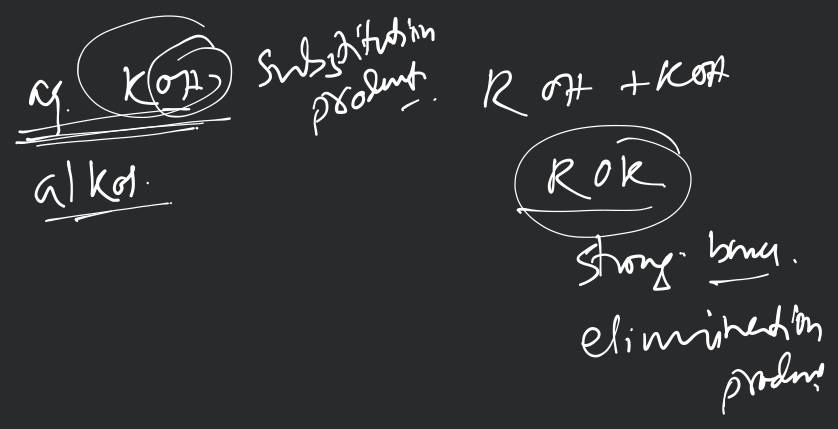 aq. KOH Substitution
product.
R OH + KOH
alKOH.
ROK
Strong base.
elimination
produ